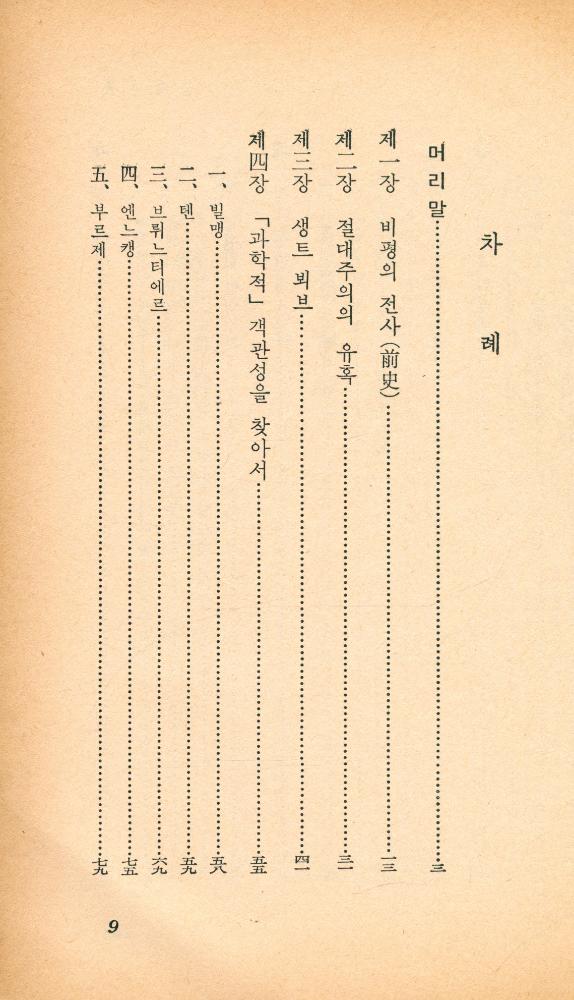 차 례
머리말……三
제一장 비평의 전사(前史)……一三
제二장 절대주의의 유혹……三一
제三장 생트 뵈브……四一
제四장 「과학적」 객관성을 찾아서……五五
一、 빌맹……五八
二、 텐……五九
三、 브뤼느티에르……六九
四、 엔느캥……七五
五、 부르제……七九
9